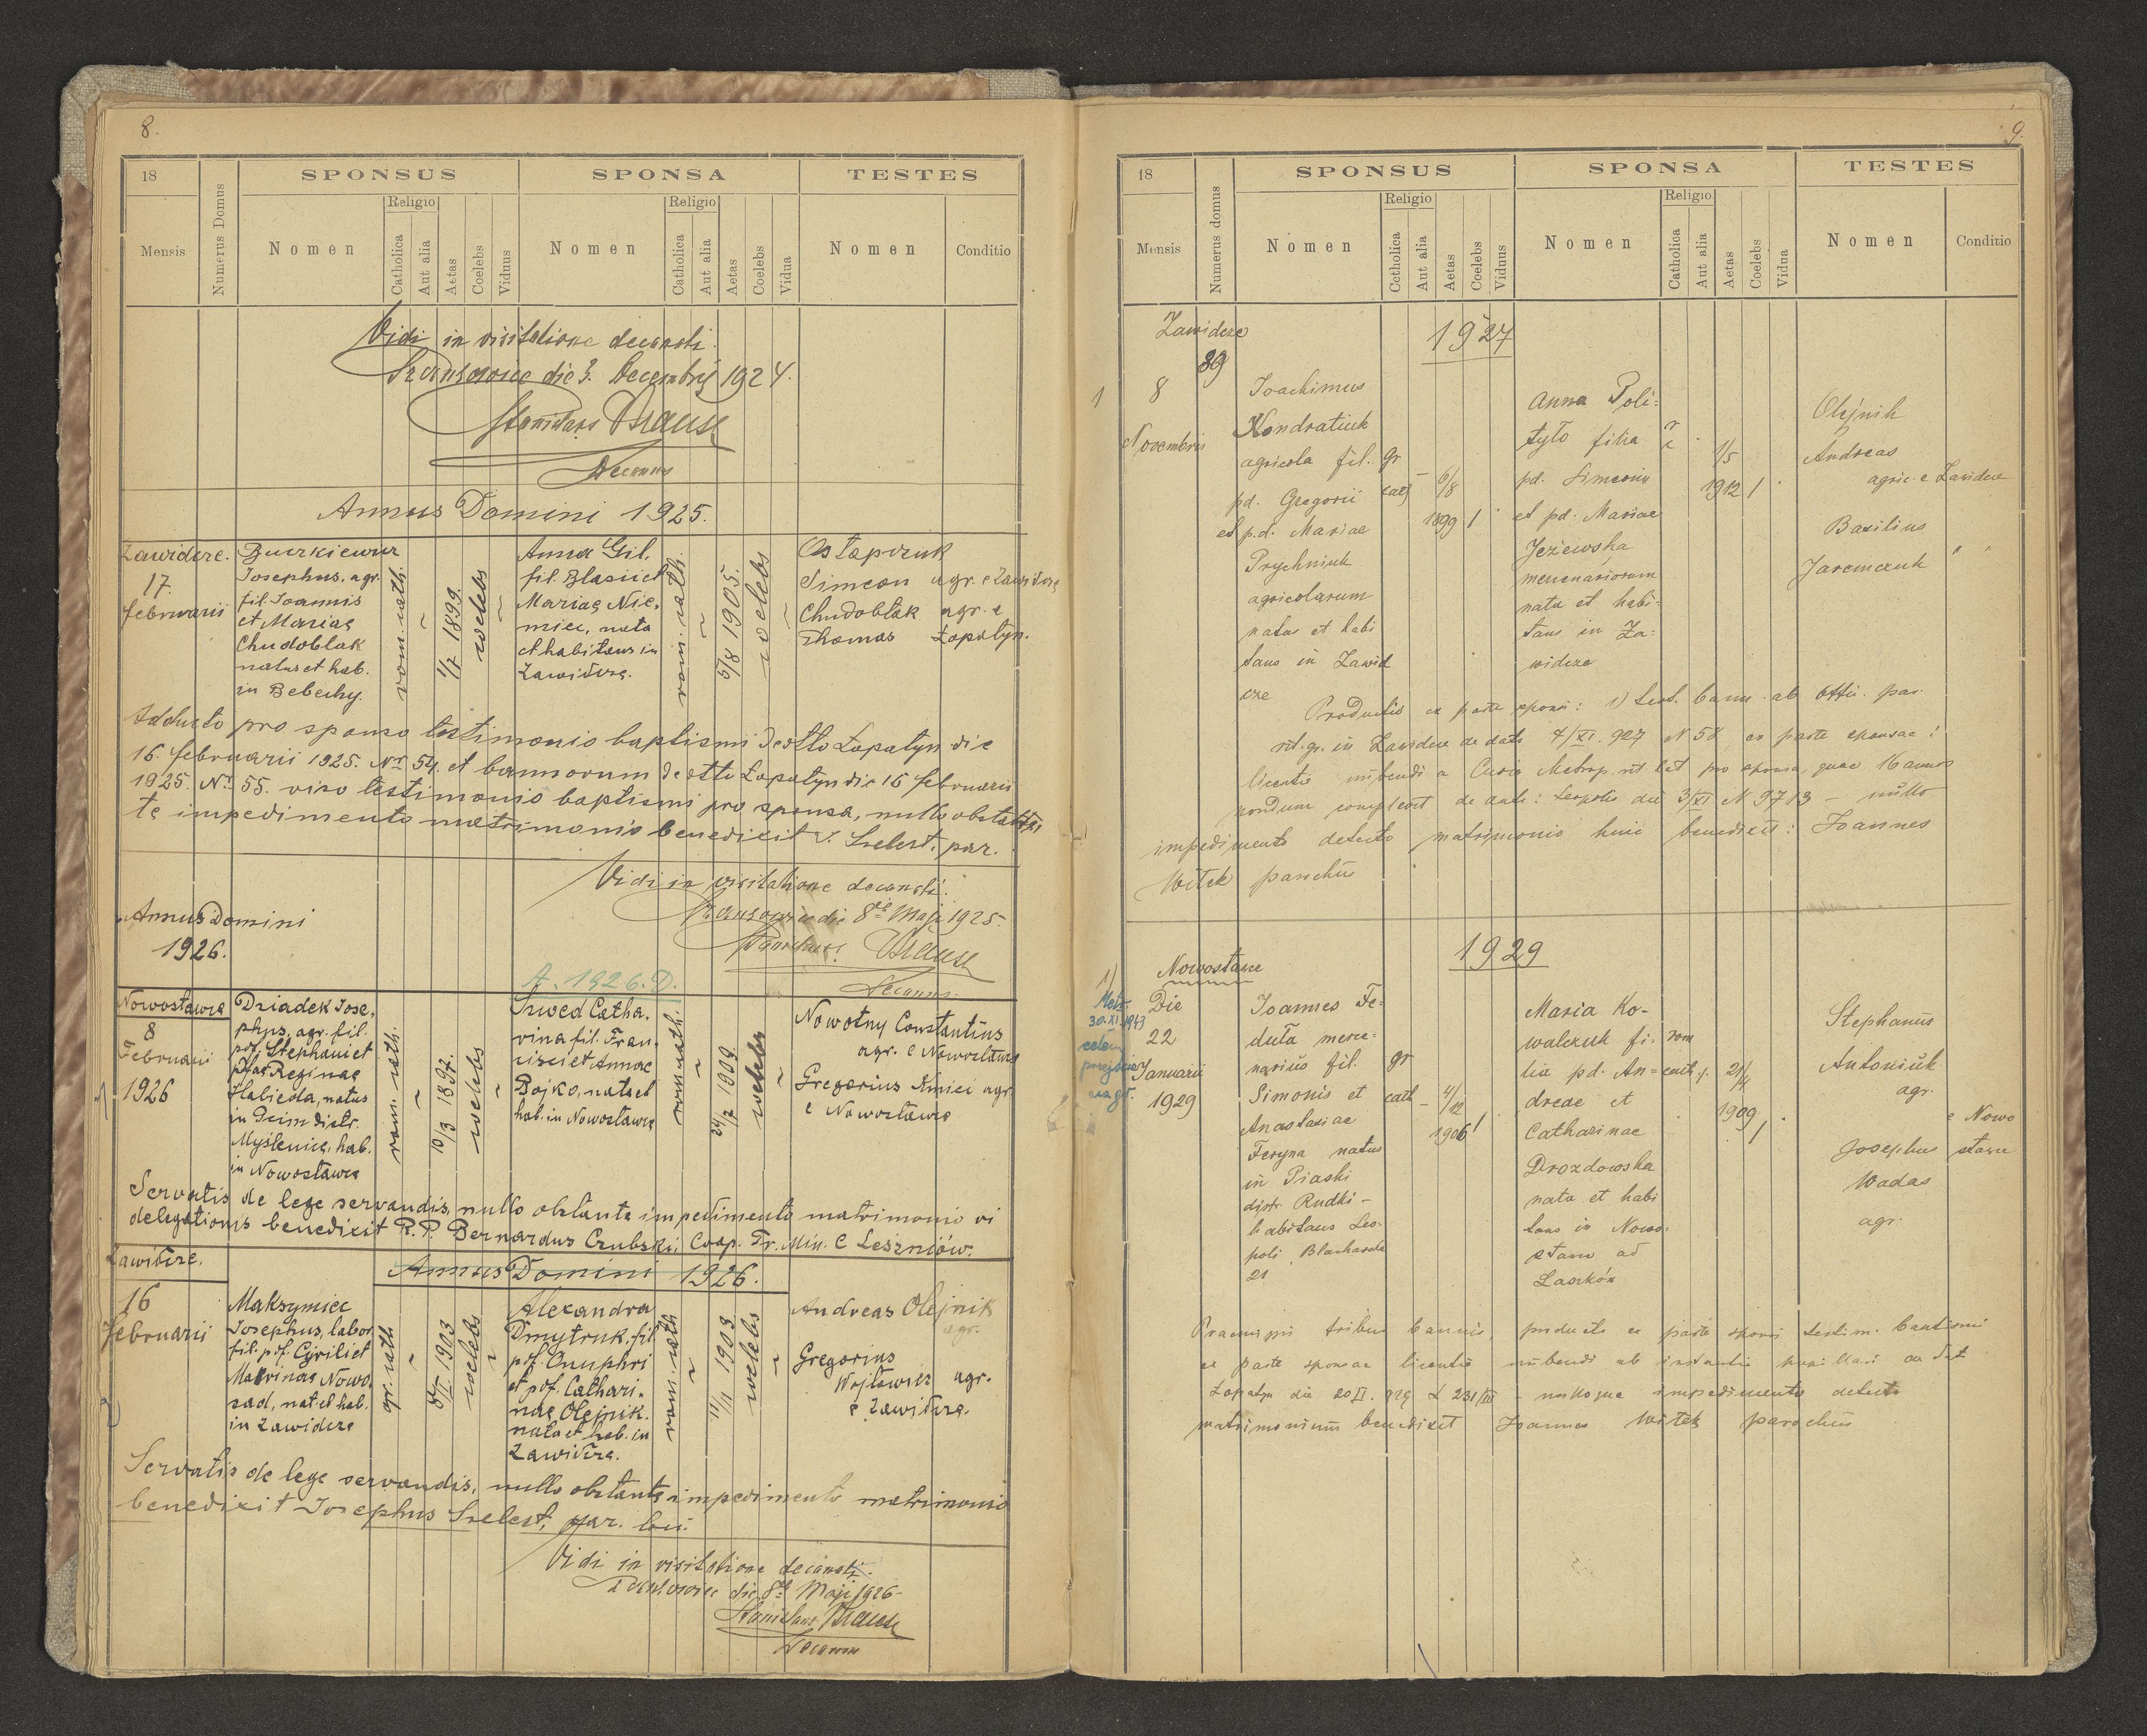 8.
18
Numerus Domus
SPONSUS
SPONSA
TESTES
Mensis
Nomen
Religio
Catholica
Aut alia
Aetas
Coelebs
Viduus
Nomen
Religio
Catholica
Aut alia
Aetas
Coelebs
Vidua
Nomen
Conditio
Vidi in visitatione decanali
die 3. Decembris 1924.
Stanislaus Krause
Decanus
Annus Domini 1925.
Zawidcze.
17.
februarii
Josephus, agr.
fil. Joannis
et Mariae
Chudoblak
natus et hab.
in Bebechy.
rom. cath.
~
1/7 1899.
coelebs
~
Anna Gil,
fil. Blasii et
Mariae Nie-
miec, nata
et habitans in
Zawidcze.
rom. cath.
~
5/8 1905.
coelebs
~
Ostapczuk
Simeon agr. e Zawidcze
Chudoblak agr. e
Thomas Łopatyn.
Adducto pro sponso testimonio baptismi de dtto Łopatyn die
16. februarii 1925. Nr. 54. et bannorum de dtto Łopatyn die 16 februarii
1925. Nr. 55. viso testimonio baptismi pro sponsa, nullo obstan
te impedimento matrimonio benedixit J. Szelest. par.
Vidi in visitatione decanali.
die 8va Maji 1925.
Stanislaus Krause
Decanus.
Annus Domini
1926.
A. 1926. D.
Nowostawce
8
Februarii
1926
Dziadek Jose-
phus, agr. fil.
pdf. Stephani et
pfae Reginae
Habieda, natus
in distr.
Myślenice, hab.
in Nowostawce
rom. cath.
~
10/3 1897.
coelebs
~
Szwed Catha-
rina fil. Fran-
cisci et Annae
Bojko, nata et
hab. in Nowostawce
rom. cath.
~
24/7 1909.
coelebs
~
Nowotny Constantius
agr. e Nowostawce
Gregorius Kmieć agr.
e Nowostawce
Servatis de lege servandis, nullo obstante impedimento matrimonio vi
delegationis benedixit R. P. Bernardus Czubski, Coop. Fr. Min. e Leszniów.
Zawidcze.
Annus Domini 1926.
16
februarii
Maksymiec
Josephus, labor.
fil. pdf. Cyrilli et
Malvinae Nowo-
sad, nat. et hab.
in Zawidcze
gr. cath
~
1903
coelebs
~
Alexandra
Dmytruk, fil.
pdf. Onuphri
et pdf. Cathari-
nae Olejnik.
nata et hab. in
Zawidcze.
rom. cath
~
11/11 1903
coelebs
~
Andreas Olejnik
agr.
Gregorius
Wojtowicz agr.
e Zawidcze.
Servatis de lege servandis, nullo obstante impedimento matrimonio
benedixit Josephus Szelest, par. loci.
Vidi in visitatione decanali.
die 8va Maji 1926
Stanislaus Krause
Decanus
9.
18
Numerus domus
SPONSUS
SPONSA
TESTES
Mensis
Nomen
Religio
Cctholica
Aut alia
Aetas
Coelebs
Viduus
Nomen
Religio
Catholica
Aut alia
Aetas
Coelebs
Vidua
Nomen
Conditio
Zawidcze
1927
89
1
8
Novembris
Joachimus
Kondratiuk
agricola fil.
pd. Gregorii
et p.d. Mariae
Prychniuk
agricolarum
natus et habi
tans in Zawid
cze
gr
cath
6/8
1899
Anna Poli=
tyło filia
pd. Simeonis
et pd. Mariae
Jeżewska
mercenariorum
nata et habi=
tans in Za=
widcze
1/5
1912
Olejnik
Andreas
agric. e Zawidcze
Basilius
Jaremczuk " "
Productis ex parte sponsi: 1) Test. bann. ab Offic. par.
rit. gr. in Zawidcze de dato 4/XI. 927 N 58 ex parte sponsae:
licentia nubendi a Curia Metrop. rit lat pro sponsa, quae 16 annos
nondum complevit de dato: Leopolis die 3/XI N 9713 - nullo
impedimento detecto matrimonio huic benedixit: Joannes
Witek parochus
1929
1/
Nowostawce
Die
22
Januarii
1929
30.XI.1943
Joannes Fe=
duta merce=
narius fil.
Simonis et
Anastasiae
Feryna natus
in Piaski
distr. Rudki -
habitans Leo-
poli Blacharska
21
gr
cath
4/12
1906
Maria Ko-
walczuk fi-
lia pd. An=
dreae et
Catharinae
Drozdowska
nata et habi
tans in Nowo=
stawce ad
Laszków
rom
cath.
21/4
1909
Stephanus
Antoniuk
agr.
e Nowo
stawce
Josephus
Wadas
agr.
Praemissis tribus bannis, producto ex parte sponsi testim. baptismi
ex parte sponsae licentia nubendi ab instantia pupillari de dat
Łopatyn die 20 II. 929 L 231/III - nulloque impedimento detecto
matrimonium benedixit Joannes Witek parochus